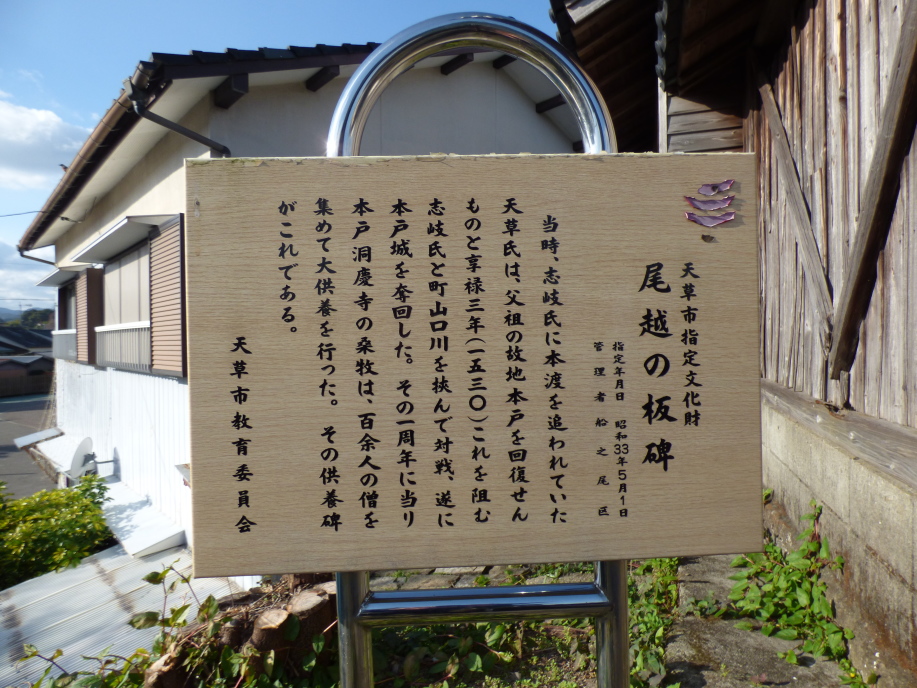 天草市指定文化財
尾越の板碑
指定年月日 昭和33年5月1日
管理者 船之尾区
当時、志岐氏に本渡を追われていた
天草氏は、父祖の故地本戸を回復せん
ものと享禄三年(一五三〇)これを阻む
志岐氏と町山口川を挟んで対戦、遂に
本戸城を奪回した。その一周年に当り
本戸洞慶寺の桑牧は、百余人の僧を
集めて大供養を行った。その供養碑
がこれである。
天草市教育委員会